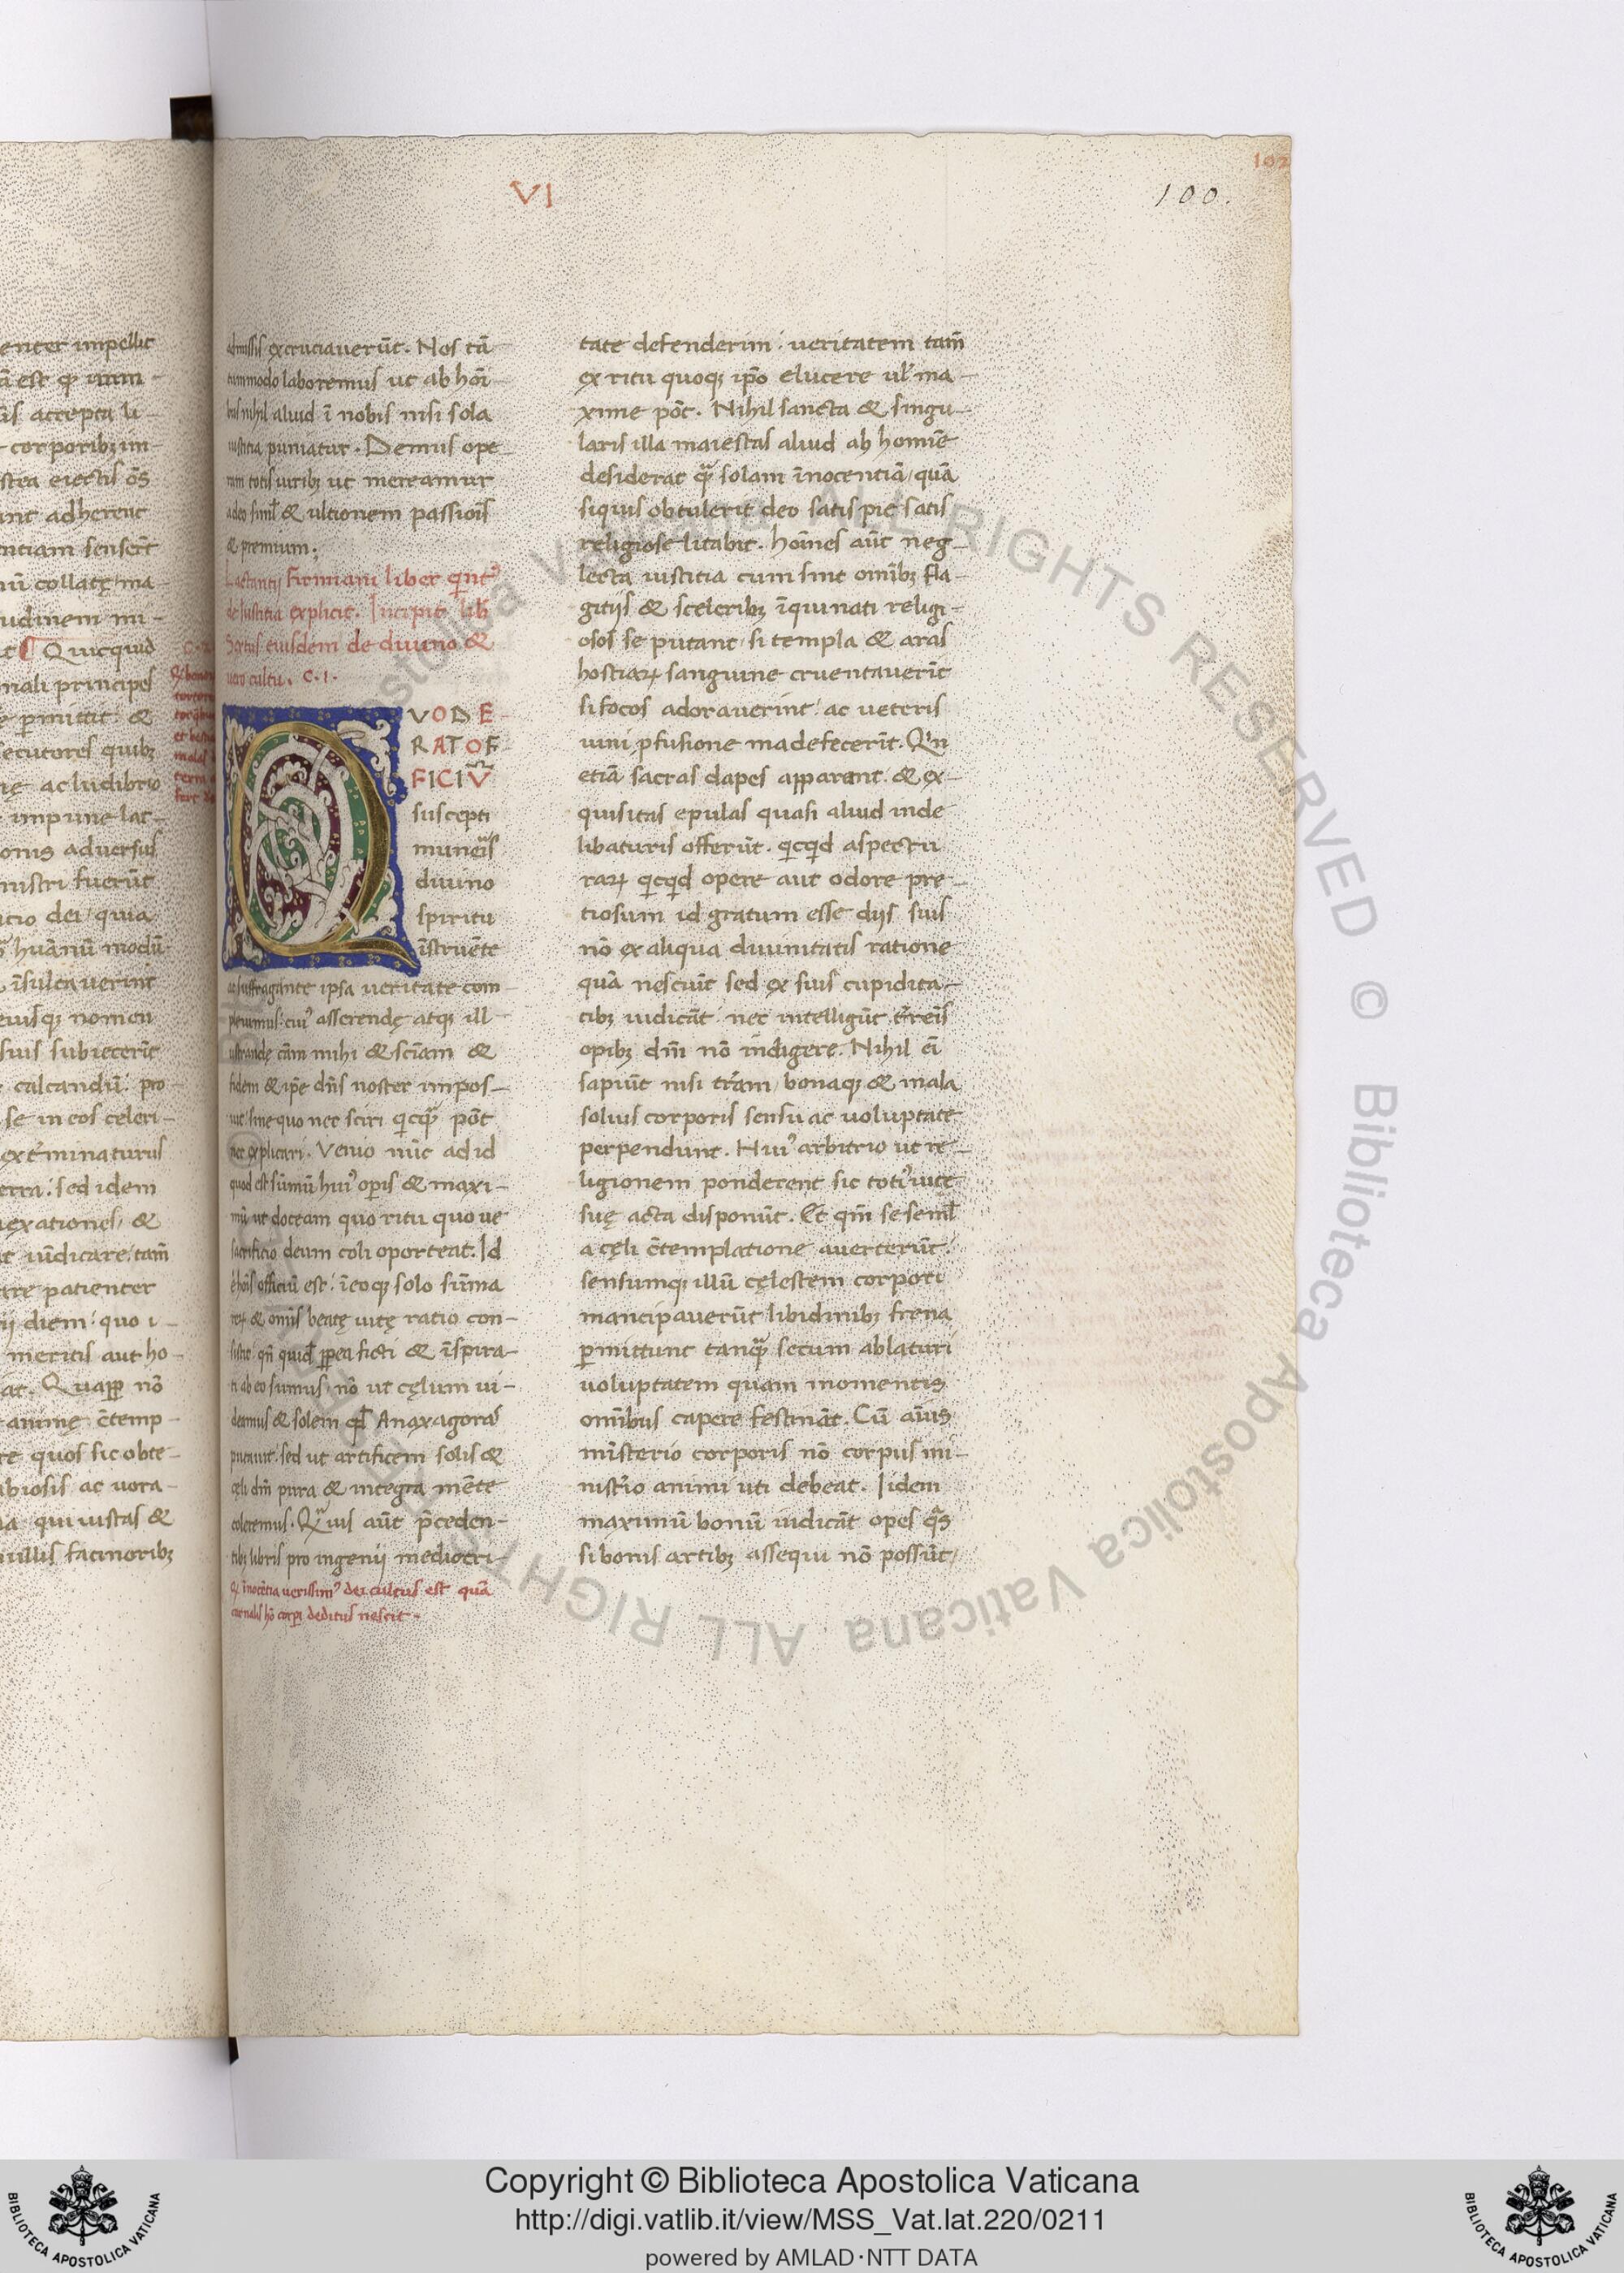 VI
102
100.
enter impellit
ā est ꝙ num-
accepta li-
corporibꝫ in-
eiectis ōs
adherent
ntiam senserīt
nū collatę ma-
udinem ini-
Quicquid
mali principes
ꝑmittit &
secutores quibꝫ
ac ludibrio
impune lat-
onis adversus
nistri fuerūt
icio dei quia
huānū modū
īsultaverint
eiusqꝫ nomen
suis subiecerīt
calcandū pro-
se in eos celeri-
exterminaturus
erra: sed idem
vexationes, &
iūdicare, tam̄
are patienter
diem: quo i-
meritis aut ho-
at. Quaꝓp nō
animę c̄temp-
re quos sic obte-
biosis ac vora-
qui iustas &
villis facinoribꝫ
admissis excruciaverūt. Nos tā
tummodo laboremus ut ab hoī-
bus nihil aliud ī nobis nisi sola
iustitia puniatur. Demus ope-
ram totis viribꝫ ut mereamur
a deo siml̄ & ultionem passiōīs
& premium:
Lactantij Firmiani liber qint᾽
de iustitia explicit. Incipit lib̄
Sextus eiusdem de divino &
vero cultu. C. I.
QVOD E-
RAT OF-
FICIV̄
suscepti
muneris
divino
spiritu
īstruēte
ac suffragante ipsa veritate com-
plevimus: cui᾽ asserendę atqꝫ ill-
ustrandę cām mihi & sciam &
fidem & ipe dn̄s noster impos-
uit, sine quo nec sciri qicqꝫ pōt
nec explicari. Venio nūc ad id
quod est sūmū hui᾽ opis & maxi-
mū ut doceam quo ritu quo ve
sacrificio deum coli oporteat. Id
ē hoīs officiū est: īeoqꝫ solo sūma
reꝝ & omīs beatę vitę ratio con-
sistit qn̄ quid̄ ꝓpea ficti & īspira-
ti ab eo sumus, nō ut cęlum vi-
deamus & solem qd̄ Anaxagoras
putavit. sed ut artificem solis &
cęli dm̄ pura & integra mēte
coleremus. Qvis aūt p̄ceden-
tibꝫ libris pro ingenij mediocri-
Q īnocētia verissim᾽ dei cultus est quā
carnalis hō corpi deditus nescit.
tate defenderim: veritatem tam̄
ex ritu quoqꝫ ipō elucere vl̄ ma-
xime pōt. Nihil sancta & singu-
laris illa maiestas aliud ab homiē
desiderat qᷓ solam īnocentiā, quā
siquis obtulerit deo satis pie satis
religiose litabit. hoīnes aūt neg-
lecta iustitia cum sint omībꝫ fla-
gitijs & sceleribꝫ īquinati religi-
osos se putant si templa & aras
hostiaꝝ sanguine cruentaverīt
si focos adoraverint: ac veteris
vini ꝓfusione madefecerīt. Qn
etiā sacras dapes apparant: & ex-
quisitas epulas quasi aliud inde
libaturis offerūt. qicqid aspectu
raꝝ qicqid opere aut odore pre-
tiosum id gratum esse dijs suis
nō ex aliqua divinitatis ratione
quā nesciūt sed ex suis cupidita-
tibꝫ iudicāt: nec intelligūt t̄reīs
opibꝫ dm̄ nō indigere. Nihil ei
sapiūt nisi tr̄am, bonaqꝫ & mala
solius corporis sensu ac voluptate
perpendunt. Hui᾽ arbitrio ut re-
ligionem ponderent sic toti᾽ vite
suę acta disponūt. Et qm̄ se seml̄
a cęli c̄templatione averterūt:
sensumqꝫ illū cęlestem corpori
mancipaverūt libidinibꝫ frena
ꝑmittunt tanqꝫ secum ablaturi
voluptatem quam momentis
omībus capere festināt. Cū aīus
mīsterio corporis nō corpus mi-
nist̄io animi uti debeat. Iidem
maximū bonū iudicāt opes qᷓs
si bonis artibꝫ assequi nō possūt,
Copyright © Biblioteca Apostolica Vaticana
http://digi.vatlib.it/view/MSS_Vat.lat.220/0211
powered by AMLAD·NTT DATA
BIBLIOTECA APOSTOLICA VATICANA
BIBLIOTECA APOSTOLICA VATICANA
© Biblioteca Apostolica Vaticana ALL RIGHTS RESERVED © Biblioteca Apostolica Vaticana ALL RIGHTS RESERVED